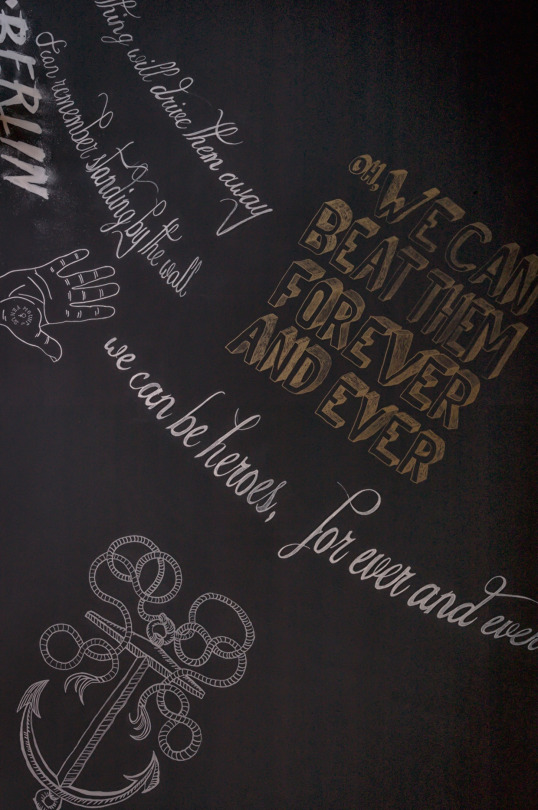 BERLIN
thing will drive them away
I can remember standing by the wall,
OH, WE CAN
BEAT THEM
FOREVER
AND EVER
we can be heroes,
for ever and ever